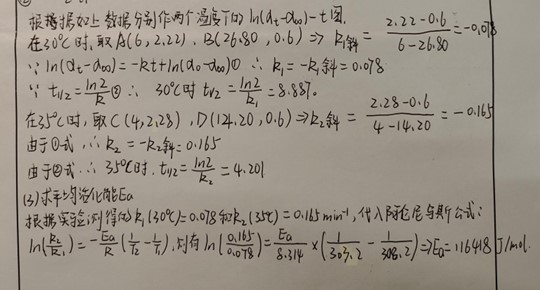 根据据如上数据分别作两个温度下的 ln(αt-α∞)-t图.
在30℃时,取A(6,2.22), B(26.80,0.6) ⇒ k₁斜 = (2.22-0.6)/(6-26.80) = -0.078
∵ ln(αt-α∞)=-kt+ln(α0-α∞)① ∴ k₁=-k₁斜=0.078
∵ t1/2 = ln2/k ② ∴ 30℃时 t1/2 = ln2/k₁ = 8.887.
在35℃时,取C(4,2.28), D(14.20,0.6) ⇒ k₂斜 = (2.28-0.6)/(4-14.20) = -0.165
由于①式, ∴ k₂ = -k₂斜 = 0.165
由于②式 ∴ 35℃时. t1/2 = ln2/k₂ = 4.201
(3)求平均活化能Ea
根据实验测得的k₁(30℃)=0.078和k₂(35℃)=0.165 min⁻¹,代入阿伦尼乌斯公式:
ln(k₂/k₁) = -Ea/R (1/T₂ - 1/T₁), 则有 ln(0.165/0.078) = Ea/8.314 × (1/303.2 - 1/308.2) ⇒ Ea=116418 J/mol.